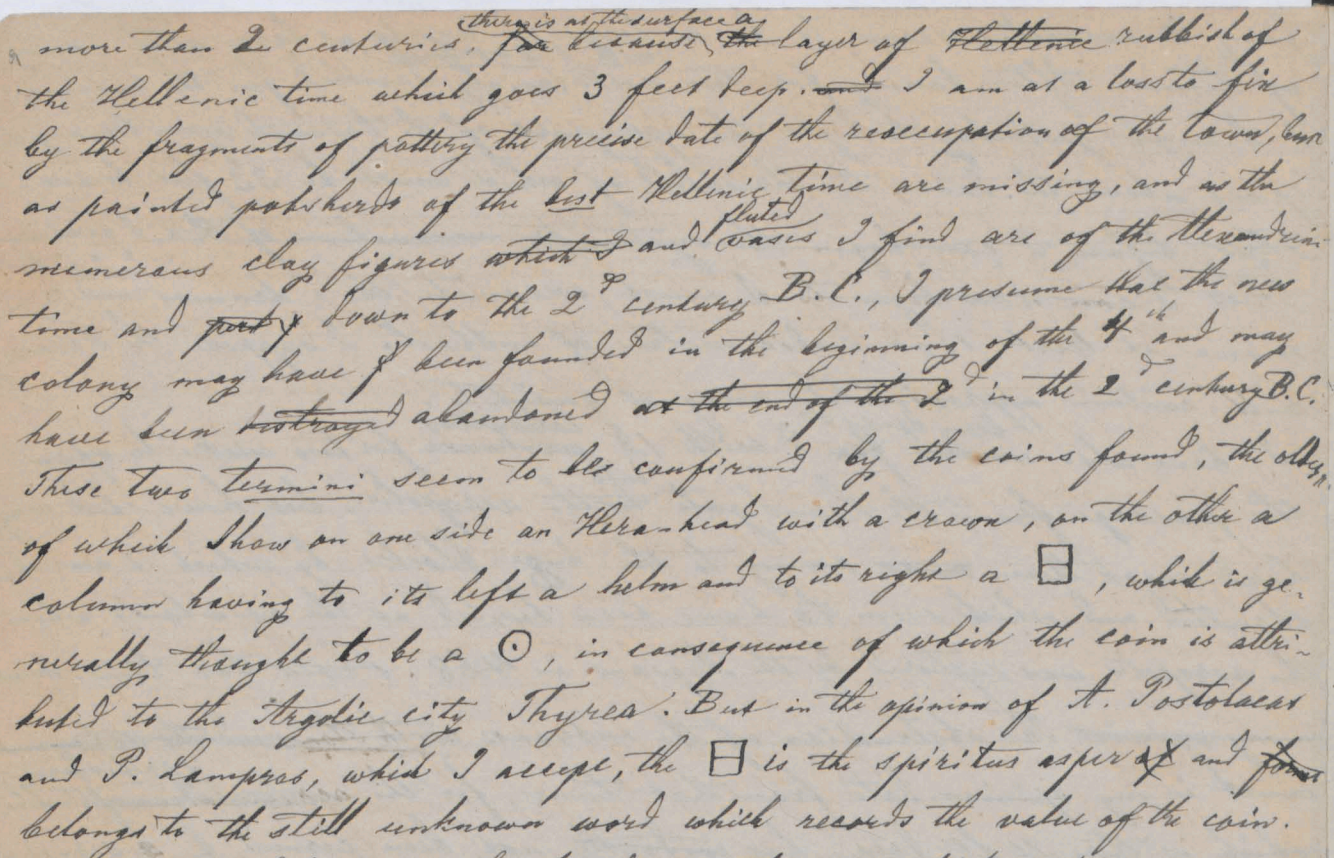 there is at the surface a
more than 2 centuries, for because the layer of Hellenic rubbish of
the Hellenic time which goes 3 feet deep. and I am at a loss to fix
by the fragments of pottery the precise date of the reoccupation of the town, but
as painted potsherds of the best Hellenic time are missing, and as the
fluted
numerous clay figures which I and vases I find are of the Alexandrian
time and down to the 2d century B.C., I presume that the new
colony may have been founded in the beginning of the 4th and may
have been destroyed abandoned at the end of the 2d in the 2d century B.C.
These two termini seem to be confirmed by the coins found, the
of which show on one side an Hera-head with a crown, on the other a
column having to its left a helm and to its right a 日, which is ge-
nerally thought to be a ⊙, in consequence of which the coin is attri-
buted to the Argolic city Thyrea. But in the opinion of A. Postolacas
and P. Lampros, which I accept, the 日 is the spiritus asper and
belongs to the still unknown word which records the value of the coin.